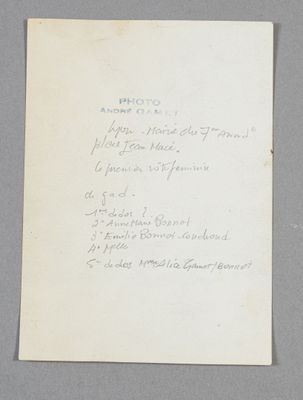 PHOTO
ANDRÉ GAMET
Lyon - Mairie du 7me Arrondt
place Jean Macé.
Le premier vote féminin
de g a d.
1ère de dos ?
2e Anne Marie Bonnot
3e Emilie Bonnot
4e Melle
5e de dos Mme Alice Gamet/Bonnot